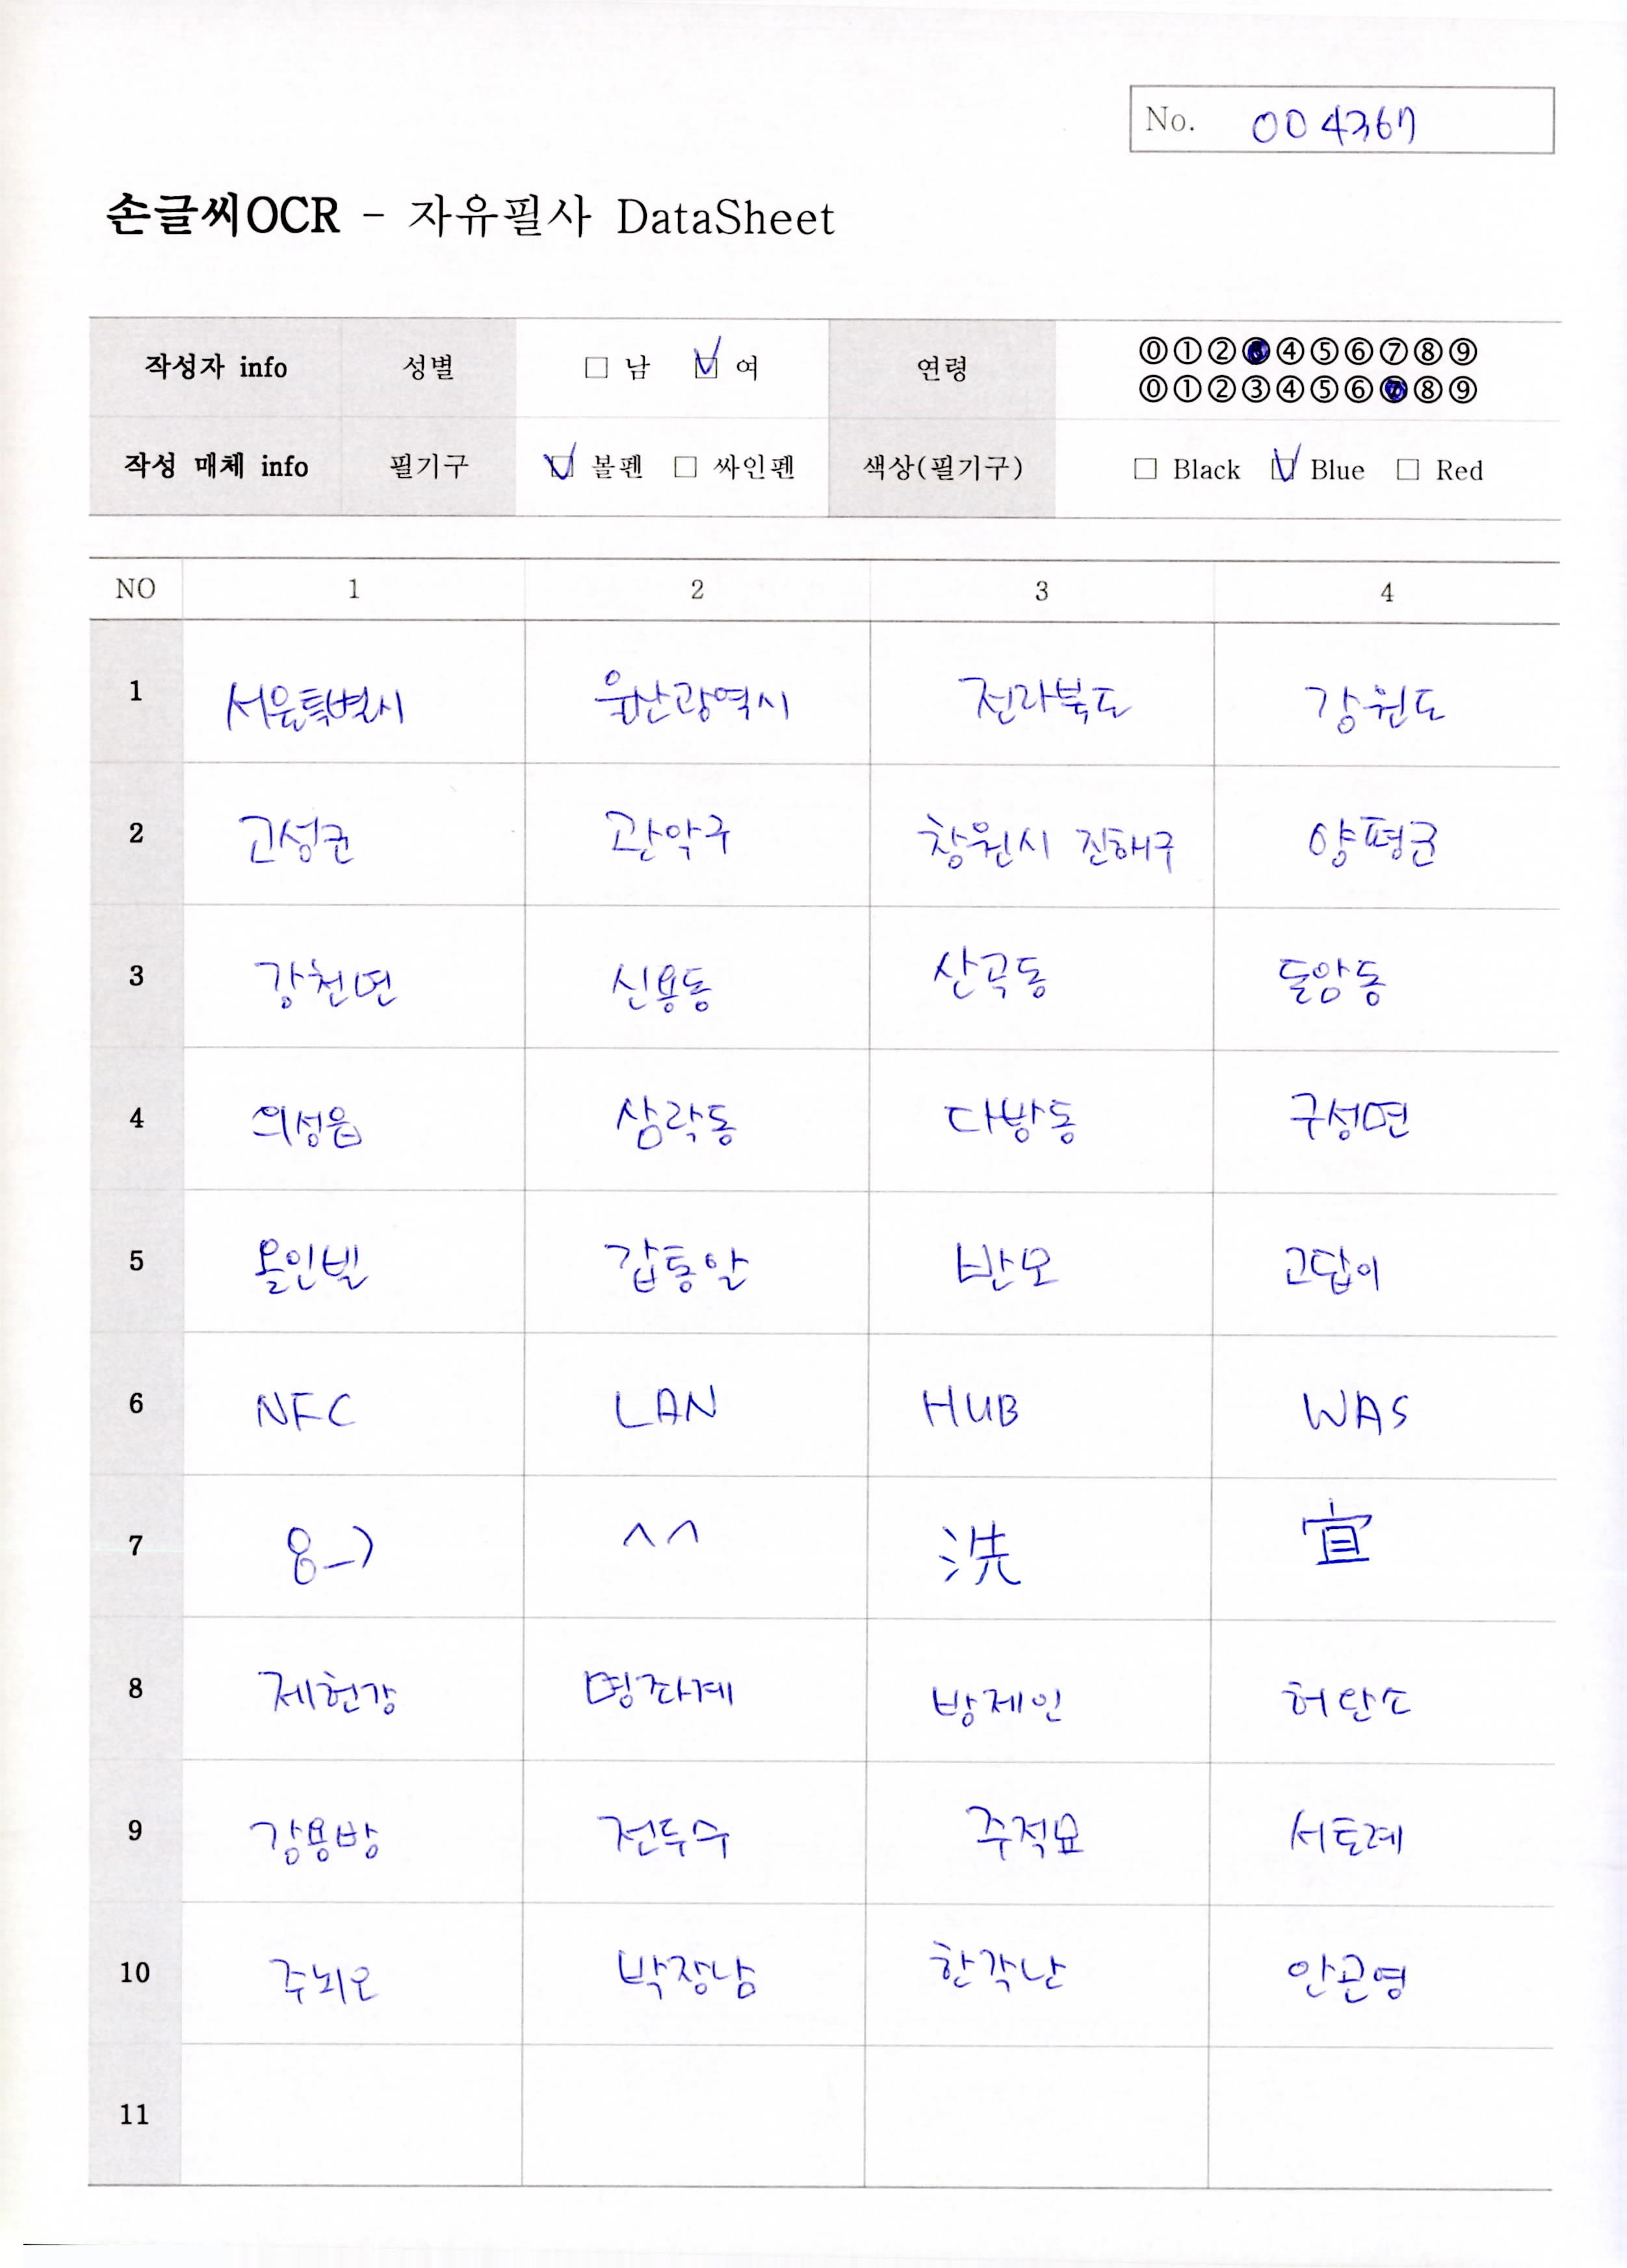 No. 004367
손글씨OCR - 자유필사 DataSheet
작성자 info 성별 □ 남 ☑ 여 연령 ⓪①②③④⑤⑥⑦⑧⑨
⓪①②③④⑤⑥⑦⑧⑨
작성 매체 info 필기구 ☑ 볼펜 □ 싸인펜 색상(필기구) □ Black ☑ Blue □ Red
NO 1 2 3 4
1 서울특별시 울산광역시 전라북도 강원도
2 고성군 관악구 창원시 진해구 양평군
3 강천면 신용동 산곡동 돌암동
4 의성읍 삼락동 다방동 구성면
5 올인빌 갑통알 반모 고답이
6 NFC LAN HUB WAS
7 8-) ^^ 洗 宣
8 제헌강 명좌계 방제인 허란소
9 강용방 전두수 주적묘 서토계
10 주뇌오 박장남 한각난 안곤영
11